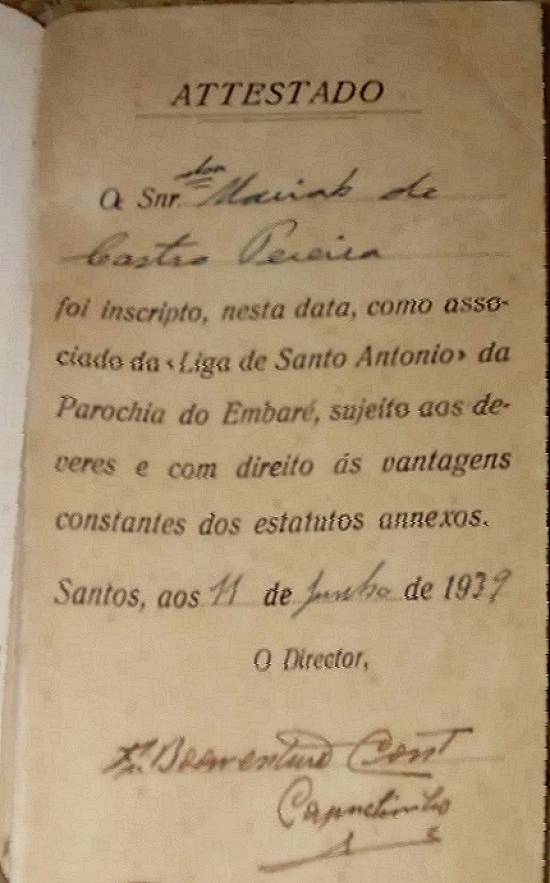 ATTESTADO
O Snr. dna de
Castro Pereira
foi inscripto, nesta data, como asso-
ciado da «Liga de Santo Antonio» da
Parochia do Embaré, sujeito aos de-
veres e com direito ás vantagens
constantes dos estatutos annexos.
Santos, aos 11 de Junho de 1939
O Director,
Fr. Boaventura
Capuchinho